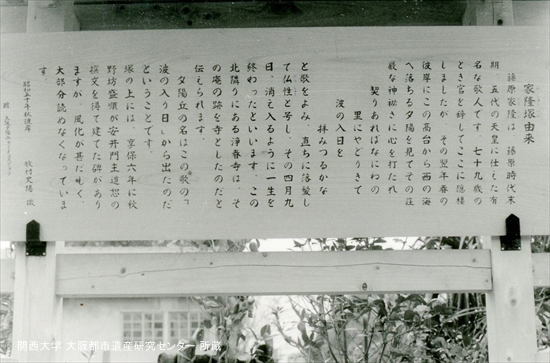 家隆塚由来
藤原家隆は 藤原時代末
期 五代の天皇に仕えた有
名な歌人です。七十九歳の
とき官を辞してここに隠棲
しましたが、その翌年春の
彼岸にこの高台から西の海
へ落ちる夕陽を見てその荘
厳な神秘さに心を打たれ
契りあればなにわの
里にやどりきて
波の入日を
拝みつるかな
と歌をよみ、直ちに落髪し
て仏性と号し、その四月九
日、消え入るように一生を
終わったといいます。この
北隣りにある浄春寺は、そ
の庵の跡を寺としたのだと
伝えられます。
夕陽丘の名はこの歌の「
波の入り日」から出たのだ
ということです。
塚の上には、享保六年に秋
野坊盛順が安井門主道恕の
撰文を得て建てた碑があり
ますが、風化が甚だしく、
大部分読めなくなっていま
す。
昭和五十年秋彼岸
牧村史陽 識
関西大学 大阪都市遺産研究センター 所蔵